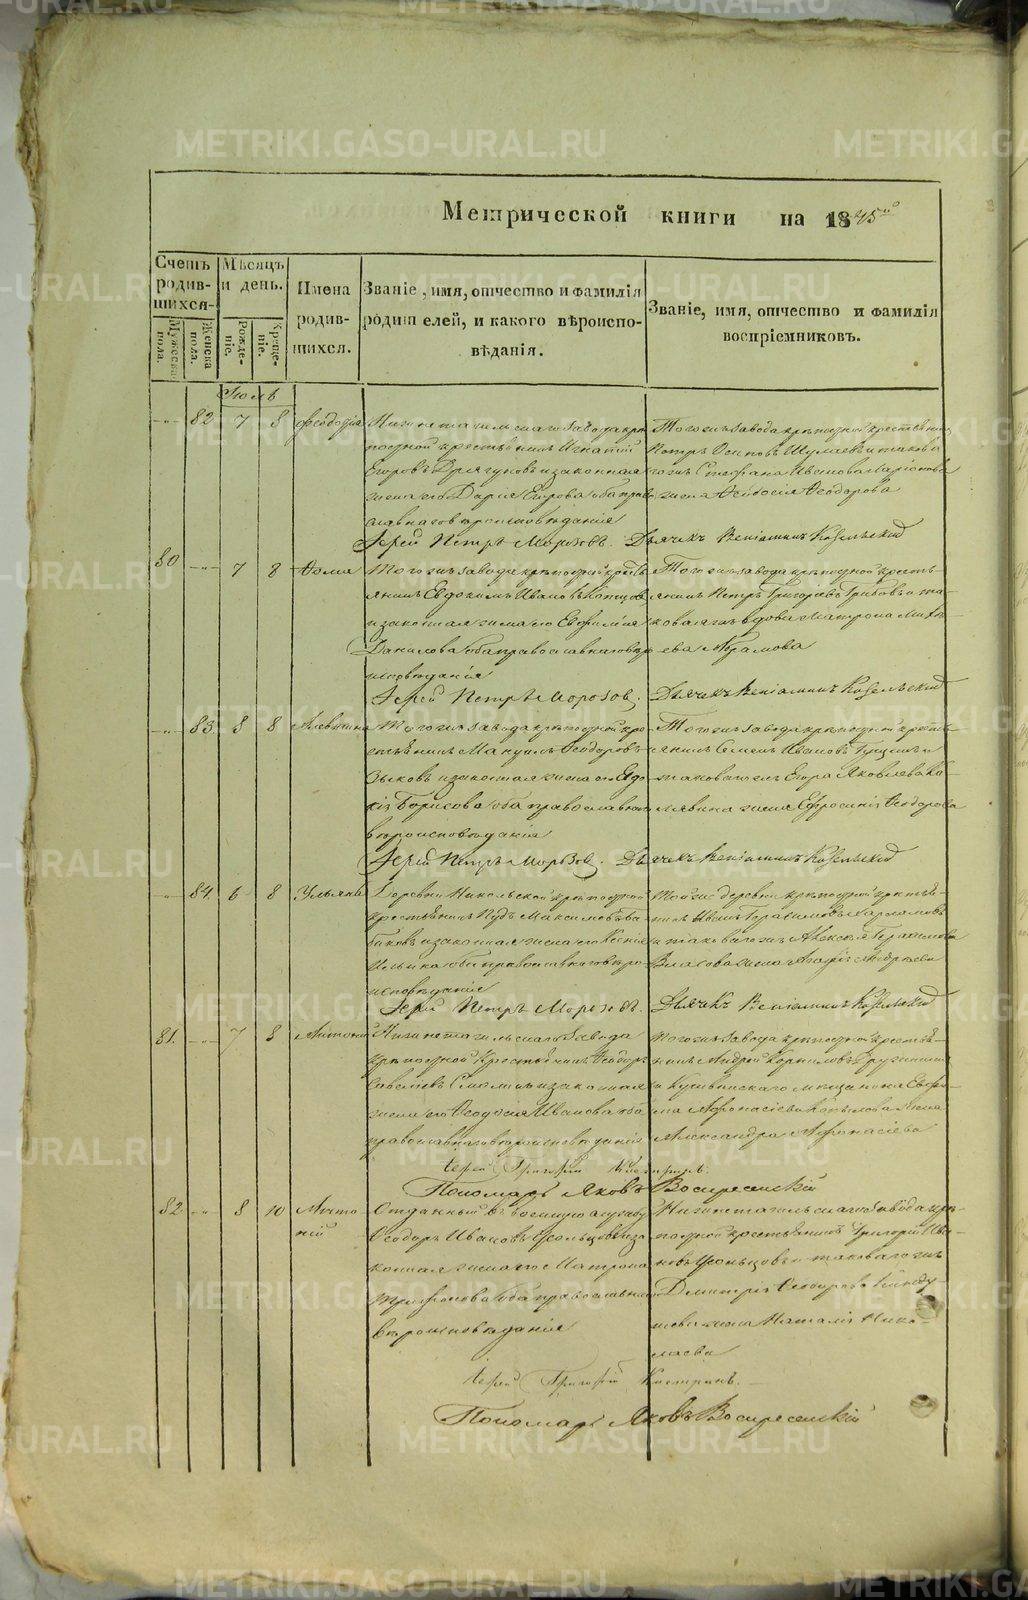 METRIKI.GASO-URAL.RU
Метрической книги на 1845го
Счетъ родив-шихся
Мужеска пола.
Женска пола.
Мѣсяцъ и день.
Рожде-нiе.
Креще-нiе.
Имена родив-шихся.
Званiе, имя, отчество и фамилiя родителей, и какого вѣроиспо-вѣданiя.
Званiе, имя, отчество и фамилiя воспрiемниковъ.
Iюль
82 7 8 Ѳеодосiя
Нижнетагильскаго завода крѣ-
постной крестьянинъ Игнатiй
Егоровъ и законная
жена его Дарiя Егорова оба право-
славнаго вѣроисповѣданiя
Тогожъ завода крѣпостной крестьянинъ
Петръ Осиповъ и таково-
гожъ Стефана Иванова
жена Ѳеодосiя Ѳеодорова
Iерей Петръ Морозовъ. Дьячекъ Венiаминъ Козельскiй
80 7 8 Ѳома
Тогожъ завода крѣпостной кресть-
янинъ Евдокимъ Ивановъ
и законная жена его Евфимiя
Данилова оба православнаго вѣро-
исповѣданiя
Тогожъ завода крѣпостной кресть-
янинъ Петръ Григорiевъ Грибовъ и та-
коваяжъ вдова Матрона Михѣ-
ева Абрамова
Iерей Петръ Морозов. Дьячекъ Венiаминъ Козельскiй
83 8 8 Алевтина
Тогожъ завода крѣпостной кре-
стьянинъ Мануилъ Ѳеодоровъ
Зыковъ и законная жена его Евдо-
кiя Борисова оба православнаго
вѣроисповѣданiя
Тогожъ завода крѣпостной кресть-
янинъ Семенъ Ивановъ и
таковагожъ Егора Яковлева
жена Ефросинiя Ѳеодорова
Iерей Петръ Морозов. Дьячекъ Венiаминъ Козельскiй
84 6 8 Ульяна
Деревни Никольской крѣпостной
крестьянинъ Нудъ Максимовъ Ба-
баковъ и законная жена его Ксенiя
Ильина оба православнаго вѣро-
исповѣданiя
Тойже деревни крѣпостной крестья-
нинъ Иванъ Герасимовъ
и таковагожъ Алексѣя Герасимова
Власова жена Андреева
Iерей Петръ Морозовъ. Дьячекъ Венiаминъ Козельскiй
81. 7 8 Антонiй
Нижнетагильскаго завода
крѣпостной крестьянинъ Ѳеодоръ
Савельевъ и законная
жена его Ѳеодосiя Иванова оба
православнаго вѣроисповѣданiя
Тогожъ завода крѣпостной крестья-
нинъ Андрей Корниловъ
и Кушвинскаго мѣщанина Евфи-
ма Афонасiева Копылова жена
Александра Афонасiева
Iерей Григорiй Кострин.
Пономарь Яковъ Воскресенскiй
82 8 10 Анто-
нiй
Отданный въ военную службу
Ѳеодоръ Ивановъ и за-
конная жена его Матрона
Трифонова оба православнаго
вѣроисповѣданiя
Нижнетагильскаго завода крѣ-
постной крестьянинъ Григорiй Ива-
новъ и таковагожъ
Димитрiя Ѳеодорова
жена Наталiя Нико-
лаева
Iерей Григорiй Костринъ.
Пономарь Яковъ Воскресенскiй